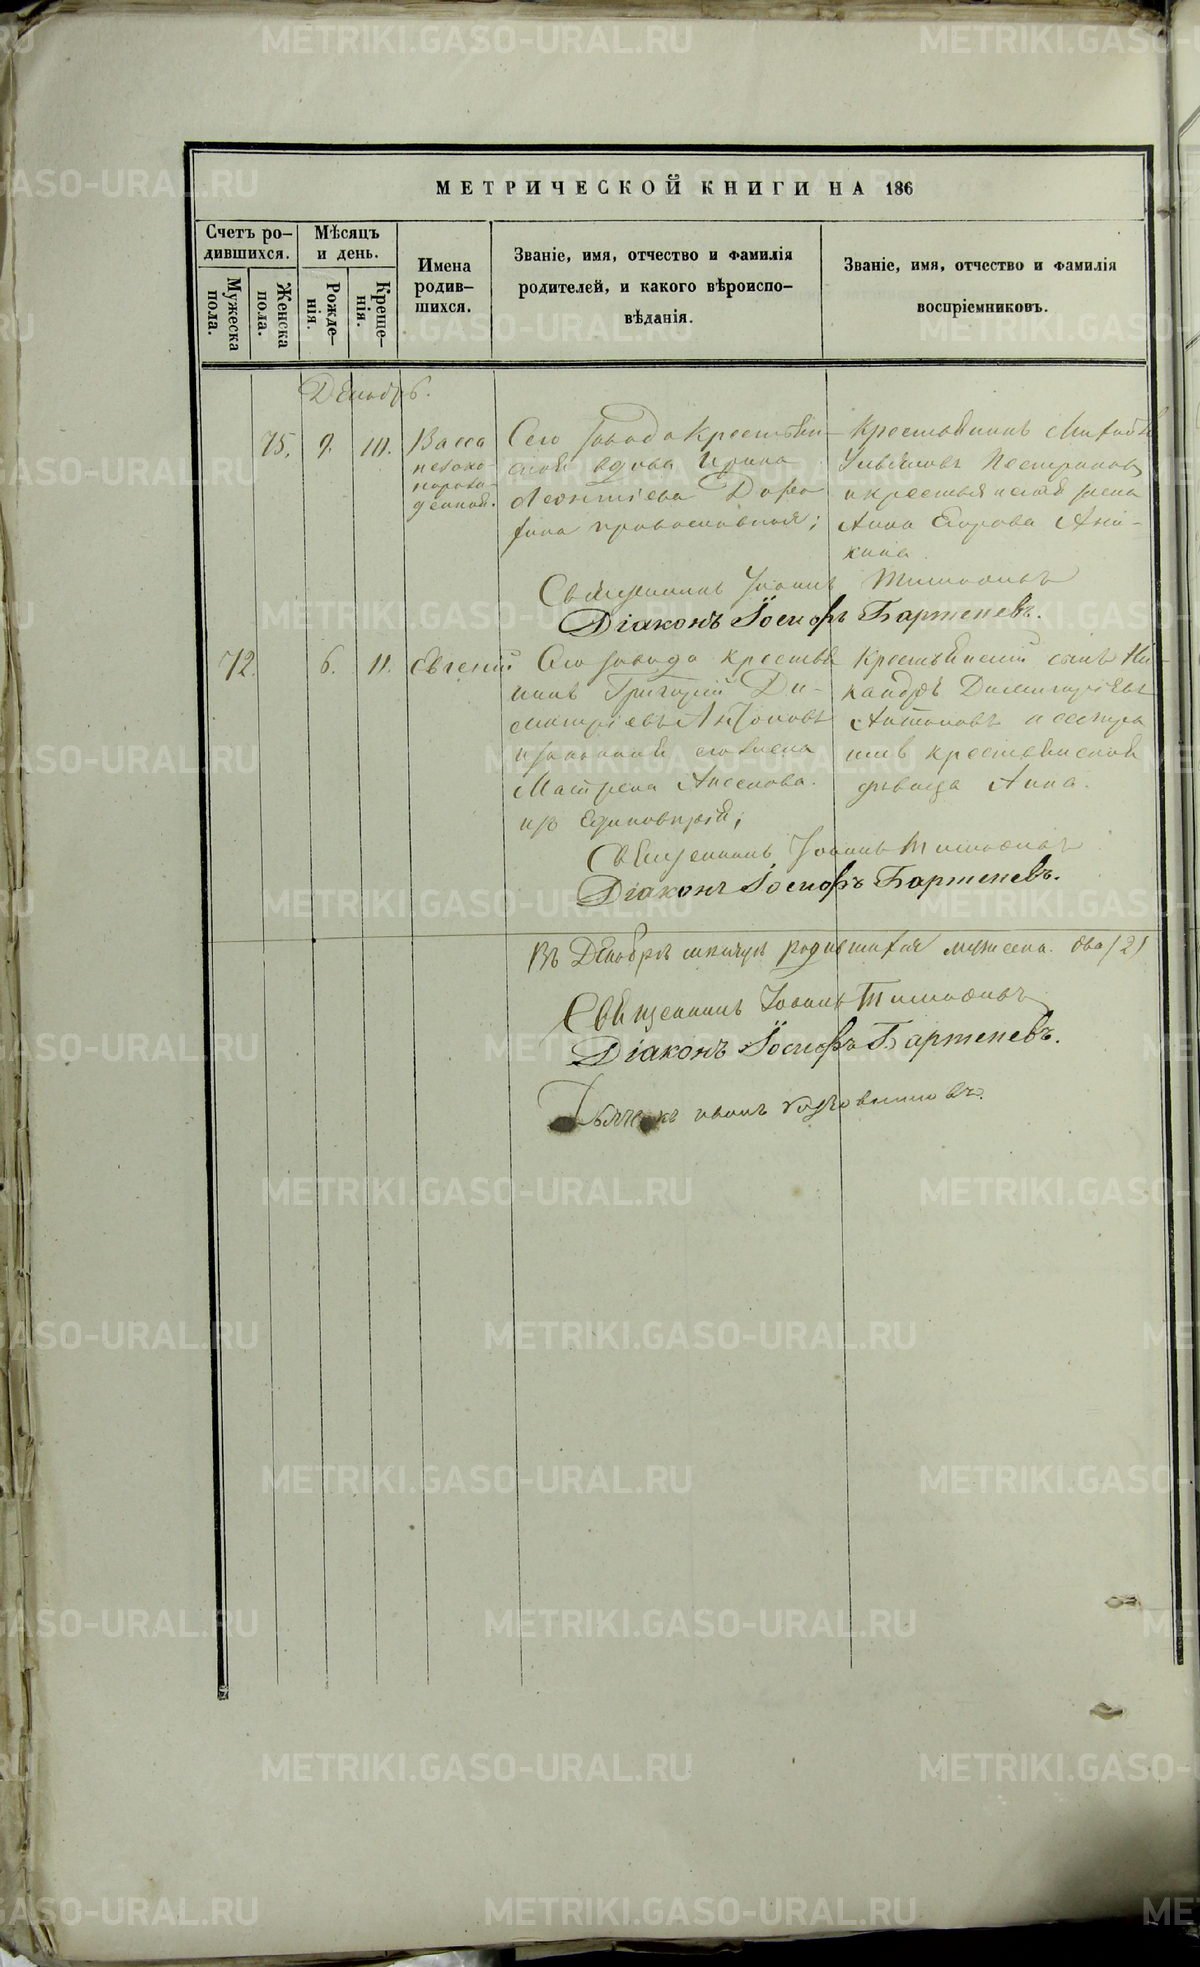 МЕТРИЧЕСКОЙ КНИГИ НА 186
Счетъ ро-
дившихся.
Мужеска
пола.
Женска
пола.
Мѣсяцъ
и день.
Рожде-
нія.
Креще-
нія.
Имена
родив-
шихся.
Званіе, имя, отчество и фамилія
родителей, и какого вѣроиспо-
вѣданія.
Званіе, имя, отчество и фамилія
воспріемниковъ.
Декабрь.
75. 9. 10. Васса
незако-
норож-
денная.
Сего завода Крестьян-
ская вдова Ирина
Леонтіева
православная;
Крестьянинъ
и крестьянская жена
Анна Егорова Ани-
кина.
Священникъ Іоаннъ
Діаконъ Іосифъ Бартеневъ.
72. 6. 11. Евгеній
Сего завода крестья
нинъ Григорій Ди-
митріевъ Антоновъ
и законная его жена
Матрена
из Единоверія;
Крестьянскій сынъ Ни-
кандръ Димитріевъ
Антоновъ и сестра
крестьянская
дѣвица Анна.
Священникъ Іоаннъ
Діаконъ Іосифъ Бартеневъ.
Въ Декабрѣ родившихся мужеска. два /2/
Священникъ Іоаннъ
Діаконъ Іосифъ Бартеневъ.
Дьячекъ иванъ
METRIKI.GASO-URAL.RU